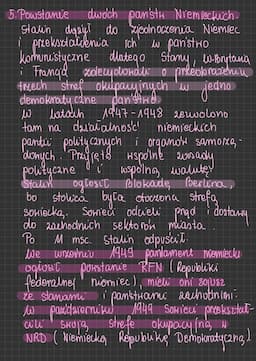 5. Powstanie dwóch państw Niemieckich.
Stalin dążył do zjednoczenia Niemiec
i przekształcenia ich w państwo
komunistyczne dlatego Stany, W.Brytania
i Francja zdecydowali o przekształceniu
trzech stref okupacyjnych w jedno
demokratyczne państwo
W latach 1947-1948 zezwolono
tam na działalność niemieckich
partii politycznych i organów samorzą-
dowych. Przyjęto wspólne zasady
polityczne i wspólną walutę
Stalin ogłosił blokadę Berlina,
bo stolica była otoczona strefą
sowiecką. Sowieci odcieli prąd i dostawy
do zachodnich sektorów miasta.
Po 11 msc. Stalin odpuścił.
We wrześniu 1949 parlament niemiecki
ogłosił powstanie RFN (Republiki
federalnej niemiec), mieli oni sojusz
ze stanami i państwami zachodnimi.
W październiku 1949 Sowieci przekształ-
cili swoją strefę okupacyjną w
NRD (Niemiecką Republikę Demokratyczną)